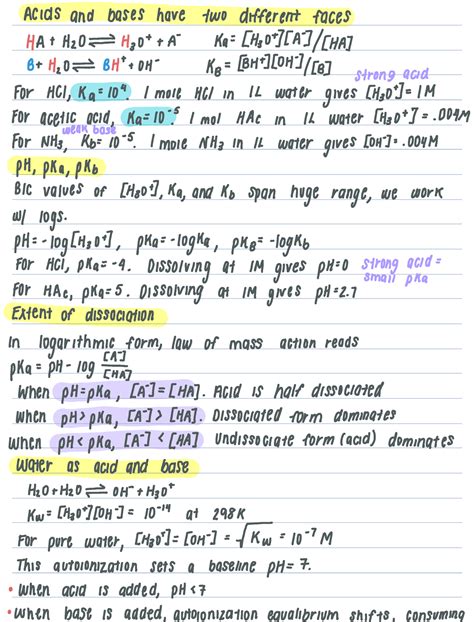 Acids and bases have two different faces
HA + H2O ⇌ H3O+ + A-    Ka = [H3O+][A-]/[HA]
B + H2O ⇌ BH+ + OH-    KB = [BH+][OH-]/[B]
strong acid
For HCl, Ka = 10^4. 1 mole HCl in 1L water gives [H3O+] = 1M
For acetic acid, Ka = 10^-5. 1 mol HAc in 1L water [H3O+] = .004M
weak base
For NH3, Kb = 10^-5. 1 mole NH3 in 1L water gives [OH-] = .004M
pH, pKa, pKb
B/c values of [H3O+], Ka, and Kb span huge range, we work
w/ logs.
pH = -log[H3O+], pKa = -logKa, pKB = -logKb
For HCl, pKa = -4. Dissolving at 1M gives pH=0 strong acid =
small pKa
For HAc, pKa = 5. Dissolving at 1M gives pH = 2.7
Extent of dissociation
In logarithmic form, law of mass action reads
pKa = pH - log [A-]/[HA]
When pH = pKa, [A-] = [HA]. Acid is half dissociated
When pH > pKa, [A-] > [HA]. Dissociated form dominates
When pH < pKa, [A-] < [HA] Undissociate form (acid) dominates
Water as acid and base
H2O + H2O ⇌ OH- + H3O+
Kw = [H3O+][OH-] = 10^-14 at 298K
For pure water, [H3O+] = [OH-] = √Kw = 10^-7 M
This autoionization sets a baseline pH = 7.
• When acid is added, pH < 7
• When base is added, autoionization equalibrium shifts, consuming